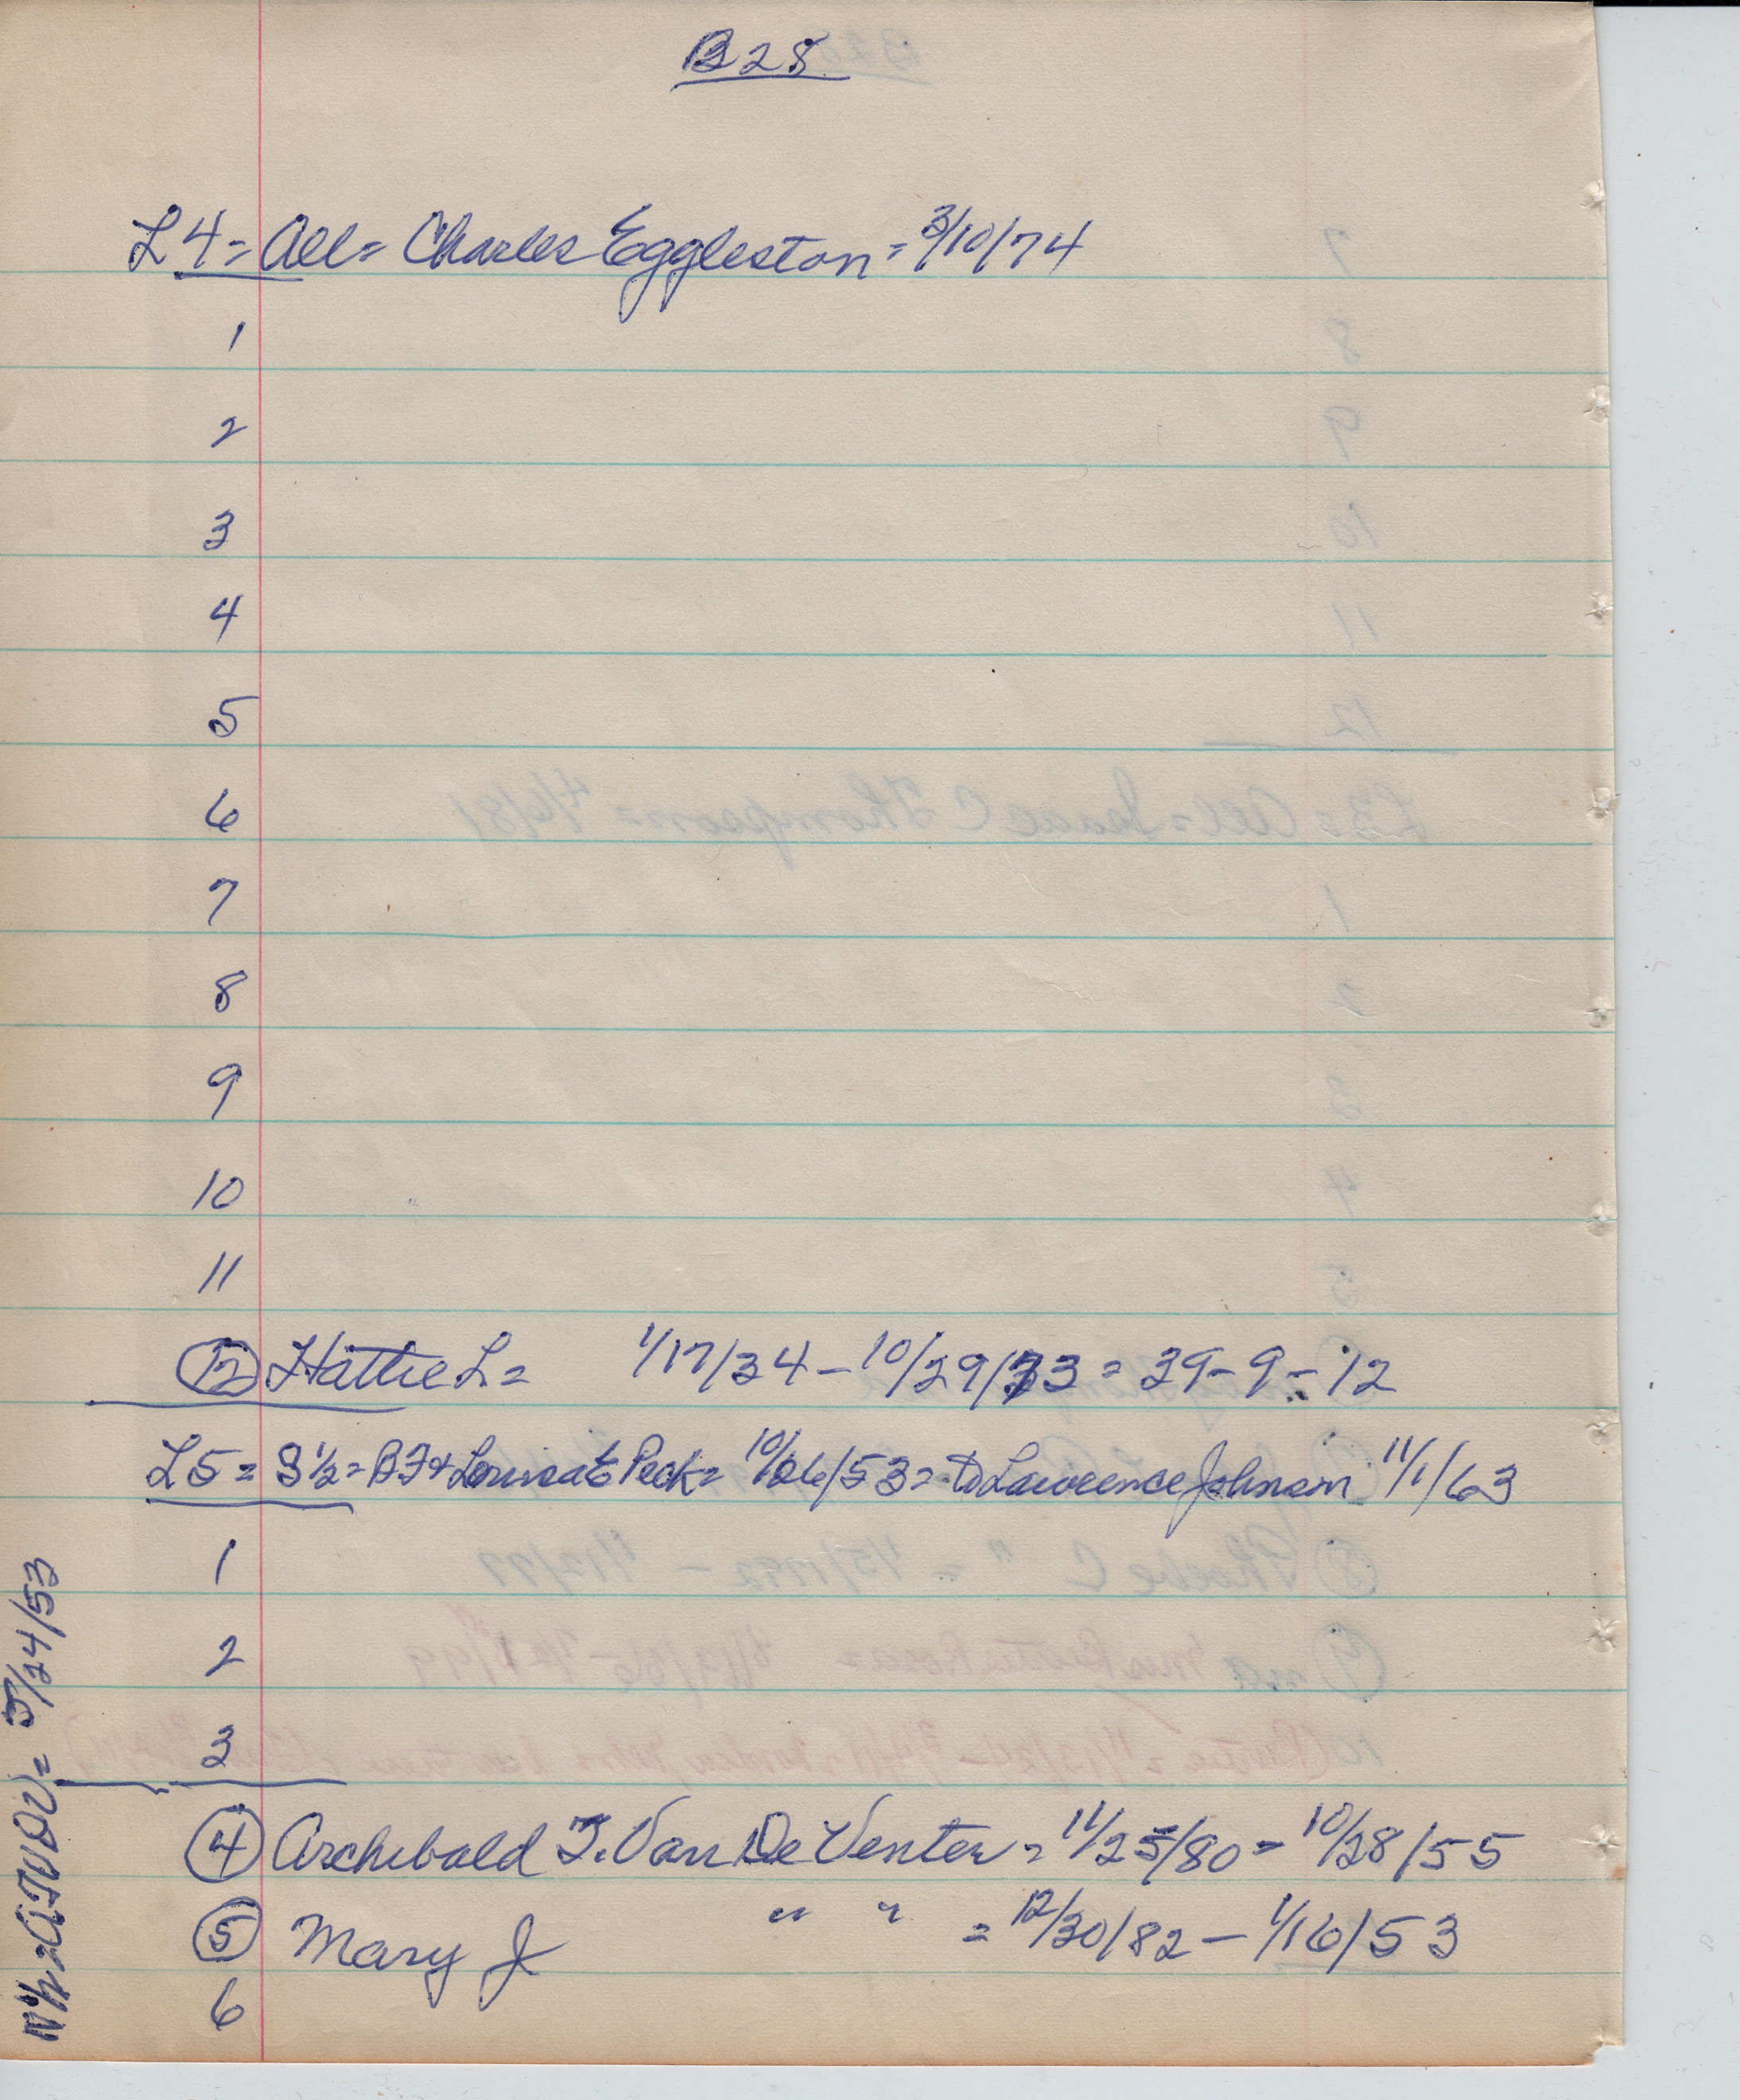 B28
L4 = All = Charles Eggleston = 3/10/74
1
2
3
4
5
6
7
8
9
10
11
12 Hattie L = 1/17/34 - 10/29/73 = 39-9-12
L5 = S 1/2 = B F + Louisa E Peck = 10/26/53 = to Lawrence Johnson 11/1/63
1
2
3
4 Archibald T. Van De Venter = 11/25/80 = 10/28/55
5 Mary J " " = 12/30/82 - 1/16/53
6
N 1/2 = AJVDV = 5/24/53